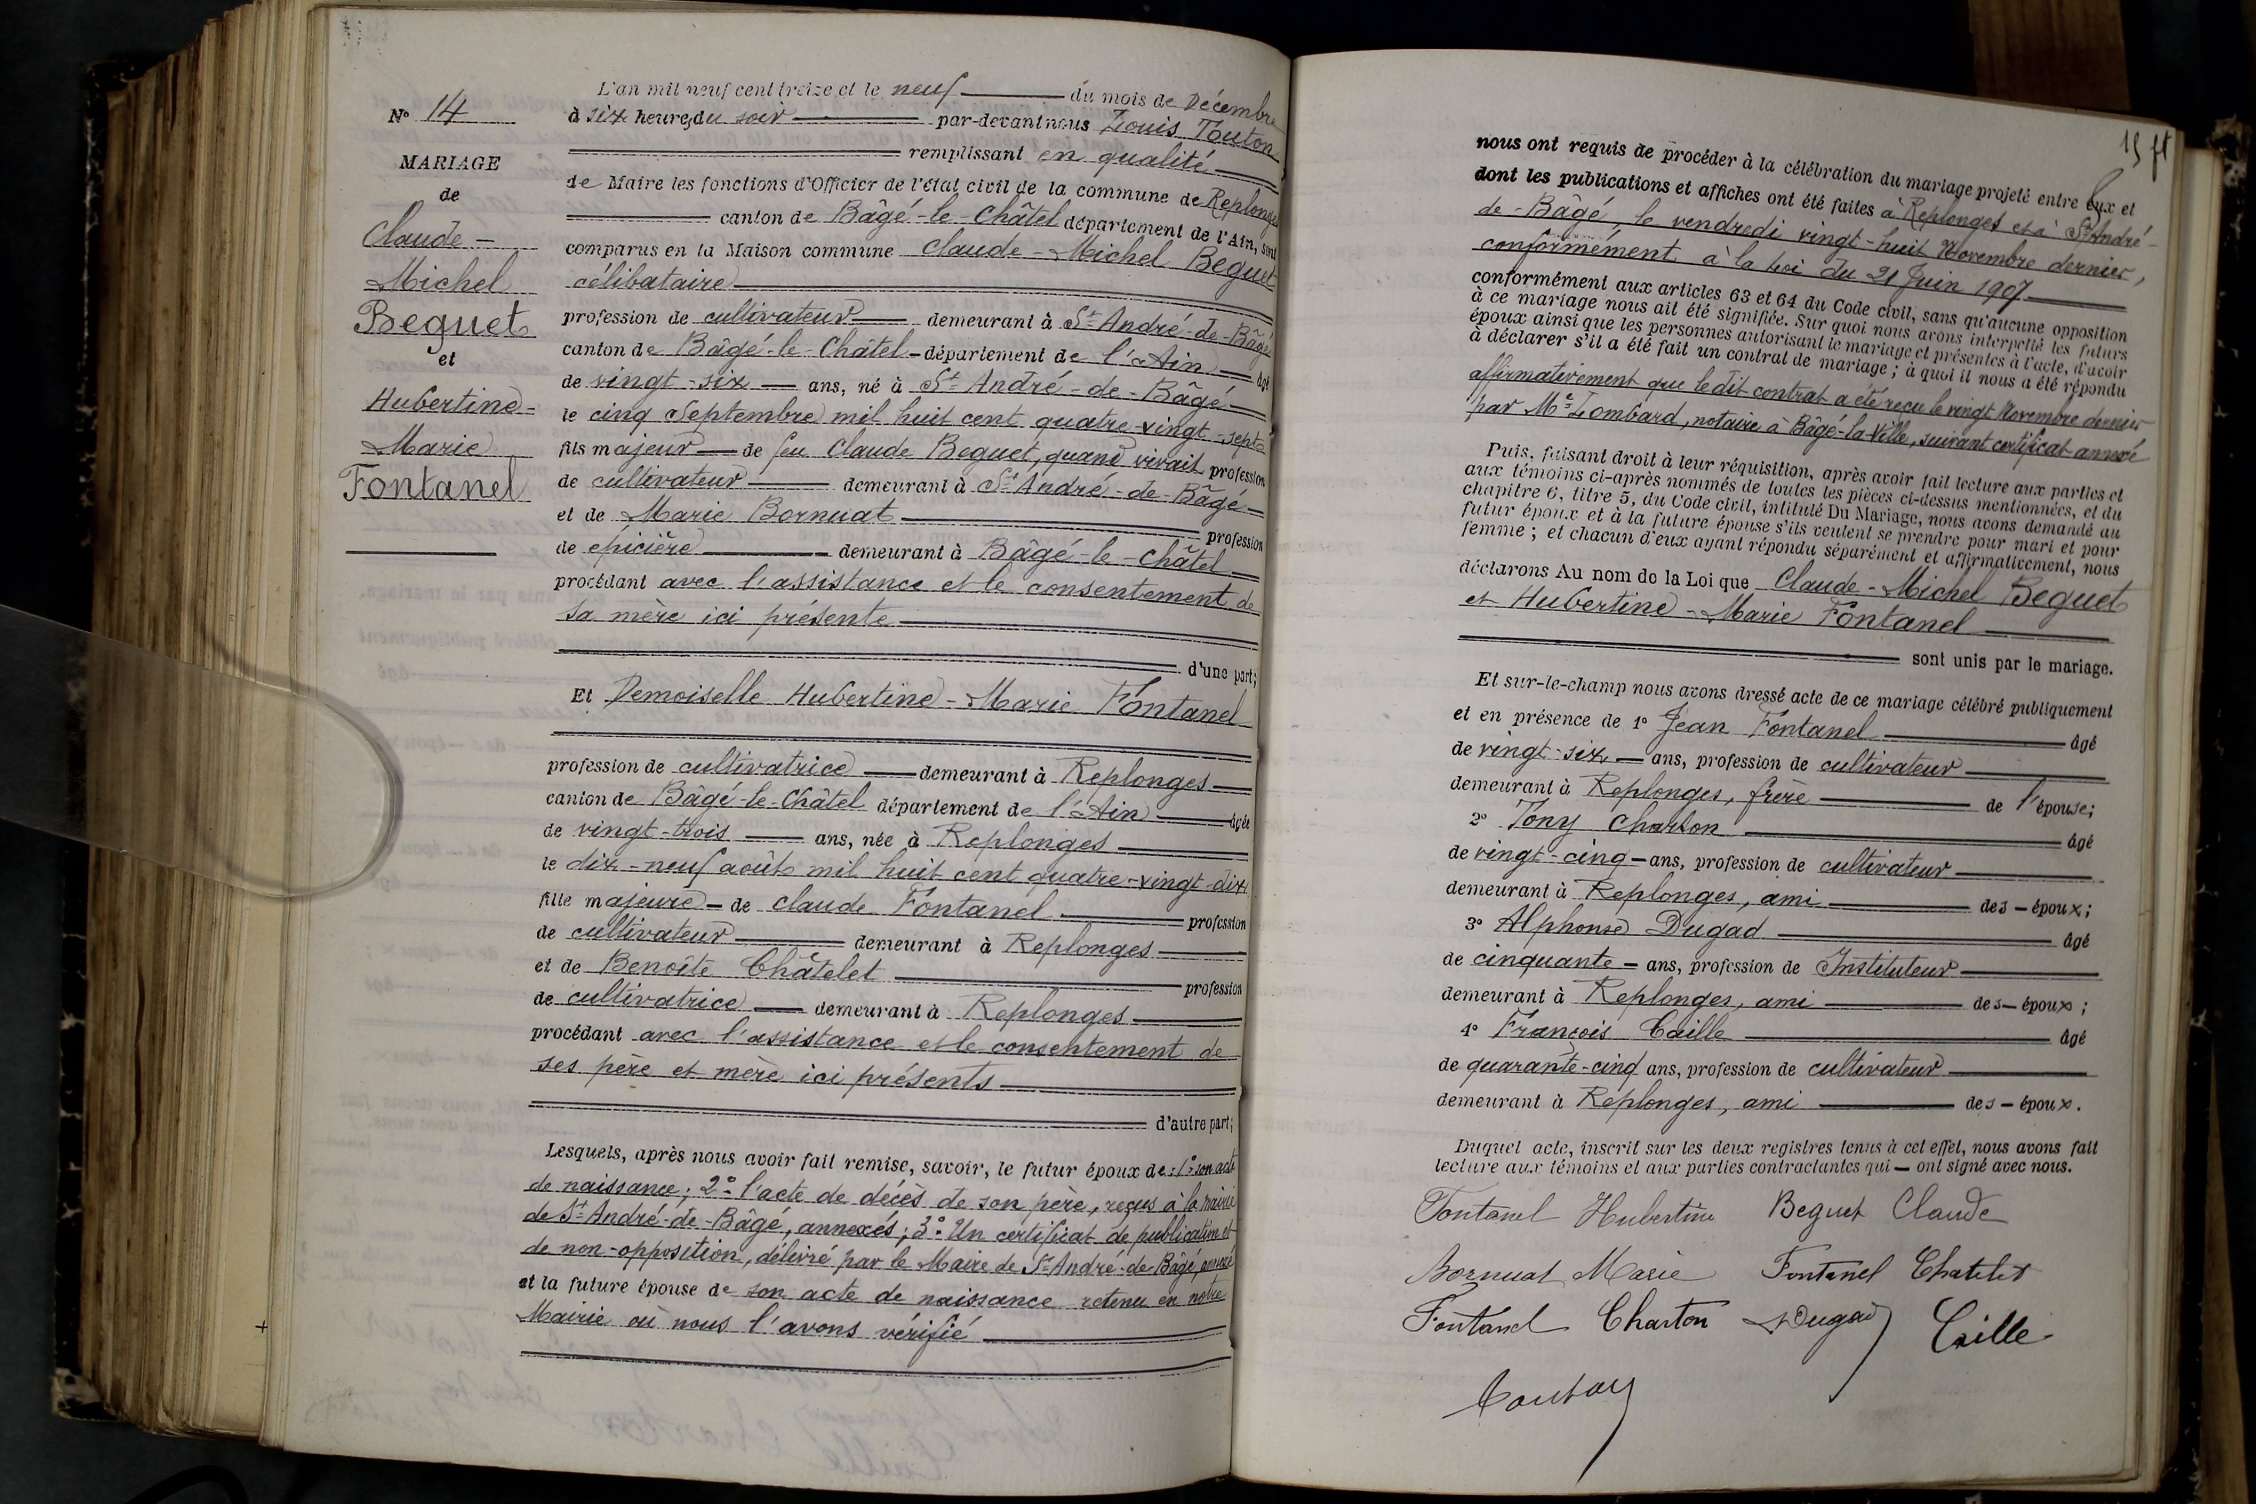 N° 14
MARIAGE
de
Claude-
Michel
Beguet
et
Hubertine-
Marie
Fontanel
L'an mil neuf cent treize et le neuf du mois de Décembre
à six heures du soir par-devant nous Louis Touton
remplissant en qualité
de Maire les fonctions d'Officier de l'état civil de la commune de Replonges
canton de Bâgé-le-Châtel département de l'Ain, sont
comparus en la Maison commune Claude-Michel Beguet
célibataire
profession de cultivateur demeurant à St André-de-Bâgé
canton de Bâgé-le-Châtel - département de l'Ain âgé
de vingt-six ans, né à St André-de-Bâgé
le cinq Septembre mil huit cent quatre-vingt-sept
fils majeur de feu Claude Beguet, quand vivait profession
de cultivateur demeurant à St André-de-Bâgé
et de Marie Bornuat profession
de épicière demeurant à Bâgé-le-Châtel
procédant avec l'assistance et le consentement de
sa mère ici présente
d'une part;
Et Demoiselle Hubertine-Marie Fontanel
profession de cultivatrice demeurant à Replonges
canton de Bâgé-le-Châtel département de l'Ain âgée
de vingt-trois ans, née à Replonges
le dix-neuf août mil huit cent quatre-vingt-dix
fille majeure - de Claude Fontanel profession
de cultivateur demeurant à Replonges
et de Benoîte Châtelet profession
de cultivatrice demeurant à Replonges
procédant avec l'assistance et le consentement de
ses père et mère ici présents
d'autre part;
Lesquels, après nous avoir fait remise, savoir, le futur époux de: 1° son acte
de naissance; 2° l'acte de décès de son père, reçus à la mairie
de St André-de-Bâgé, annexés; 3° Un certificat de publication et
de non-opposition, délivré par le Maire de St André-de-Bâgé, annexé
et la future épouse de son acte de naissance retenu en notre
Mairie où nous l'avons vérifié
15
nous ont requis de procéder à la célébration du mariage projeté entre Eux et
dont les publications et affiches ont été faites à Replonges et à St André-
de-Bâgé le vendredi vingt-huit Novembre dernier,
conformément à la Loi du 21 Juin 1907
conformément aux articles 63 et 64 du Code civil, sans qu'aucune opposition
à ce mariage nous ait été signifiée. Sur quoi nous avons interpellé les futurs
époux ainsi que les personnes autorisant le mariage et présentes à l'acte, d'avoir
à déclarer s'il a été fait un contrat de mariage; à quoi il nous a été répondu
affirmativement que le dit contrat a été reçu le vingt Novembre dernier
par Me Lombard, notaire à Bâgé-la-Ville, suivant certificat annexé
Puis, faisant droit à leur réquisition, après avoir fait lecture aux parties et
aux témoins ci-après nommés de toutes les pièces ci-dessus mentionnées, et du
chapitre 6, titre 5, du Code civil, intitulé Du Mariage, nous avons demandé au
futur époux et à la future épouse s'ils veulent se prendre pour mari et pour
femme; et chacun d'eux ayant répondu séparément et affirmativement, nous
déclarons Au nom de la Loi que Claude-Michel Beguet
et Hubertine-Marie Fontanel
sont unis par le mariage.
Et sur-le-champ nous avons dressé acte de ce mariage célébré publiquement
et en présence de 1° Jean Fontanel âgé
de vingt-six ans, profession de cultivateur
demeurant à Replonges, frère de l'épouse;
2° Tony Charton âgé
de vingt-cinq - ans, profession de cultivateur
demeurant à Replonges, ami des - époux;
3° Alphonse Dugad âgé
de cinquante - ans, profession de Instituteur
demeurant à Replonges, ami des - époux;
4° François Caille âgé
de quarante-cinq ans, profession de cultivateur
demeurant à Replonges, ami des - époux.
Duquel acte, inscrit sur les deux registres tenus à cet effet, nous avons fait
lecture aux témoins et aux parties contractantes qui - ont signé avec nous.
Fontanel Hubertine Beguet Claude
Bornuat Marie Fontanel Chatelet
Fontanel Charton Dugad Caille
Touton